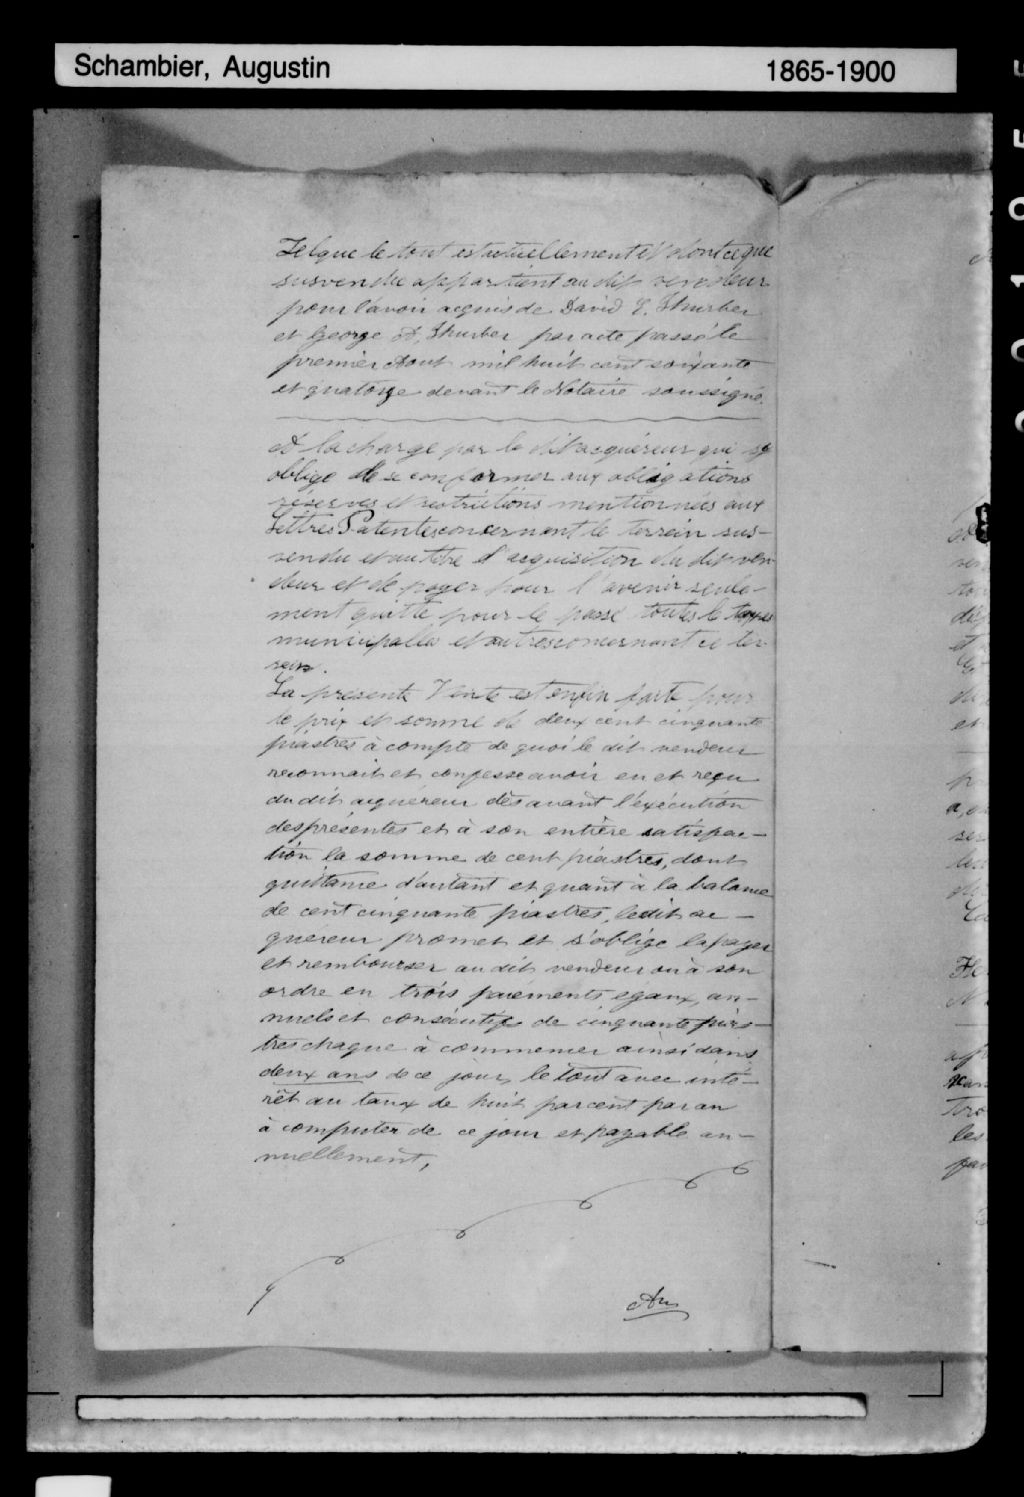 Schambier, Augustin 1865-1900
Tel que le tout est actuellement et dont ce que
susvendu appartient au dit vendeur
pour l'avoir acquis de David T. Thurber
et George A. Thurber par acte passé le
premier Aout mil huit cent soixante
et quatorze devant le Notaire soussigné.
A la charge par le dit acquéreur qui s'y
oblige de se conformer aux obligations
réserves et restrictions mentionnées aux
Lettres Patentes concernant le terrein sus-
vendu et au titre d'acquisition du dit ven-
deur et de payer pour l'avenir seule-
ment quitte pour le passé toutes le taxes
municipales et autres concernant ce ter-
rein.
La presente Vente est enfin faite pour
le prix et somme de deux cent cinquante
piastres à compte de quoi le dit vendeur
reconnait et confesse avoir eu et reçu
du dit acquéreur dès avant l'exécution
des présentes et à son entière satisfac-
tion la somme de cent piastres, dont
quittance d'autant et quant à la balance
de cent cinquante piastres, le dit ac-
quéreur promet et s'oblige la payer
et rembourser au dit vendeur ou à son
ordre en trois paiements egaux, an-
nuels et consécutifs de cinquante pias-
tres chaque à commencer ainsi dans
deux ans de ce jour, le tout avec inté-
rêt au taux de huit par cent par an
à computer de ce jour et payable an-
nuellement,